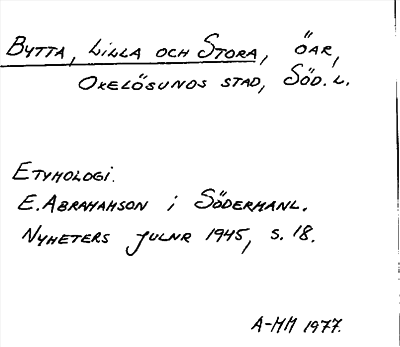 BYTTA, LILLA OCH STORA, ÖAR,
OXELÖSUNDS STAD, SÖD. L.
ETYMOLOGI.
E. ABRAHAMSON i SÖDERMANL.
NYHETERS JULNR 1945, S. 18.
A-MM 1977.